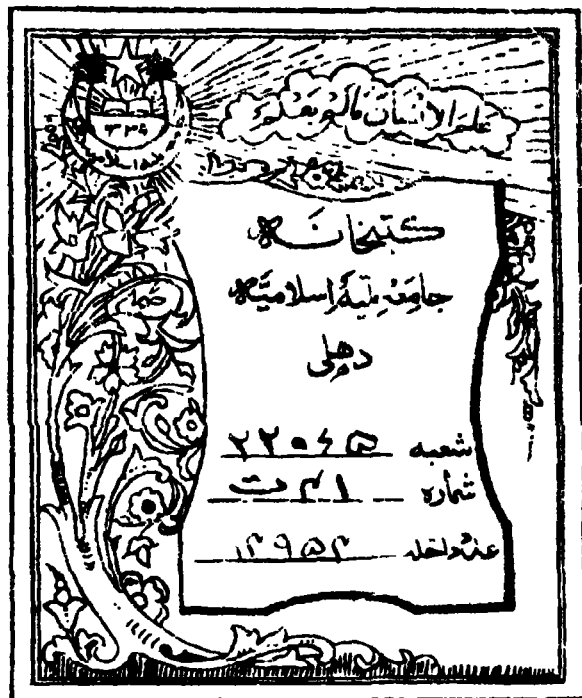 علم الانسان مالم يعلم
كتبخانہ
جامعہ ملیۂ اسلامیہ
دہلی
شعبہ ۲۲۰۶۵
شمارہ ۴۱ ت
عدد داخلہ ۱۴۹۵۴